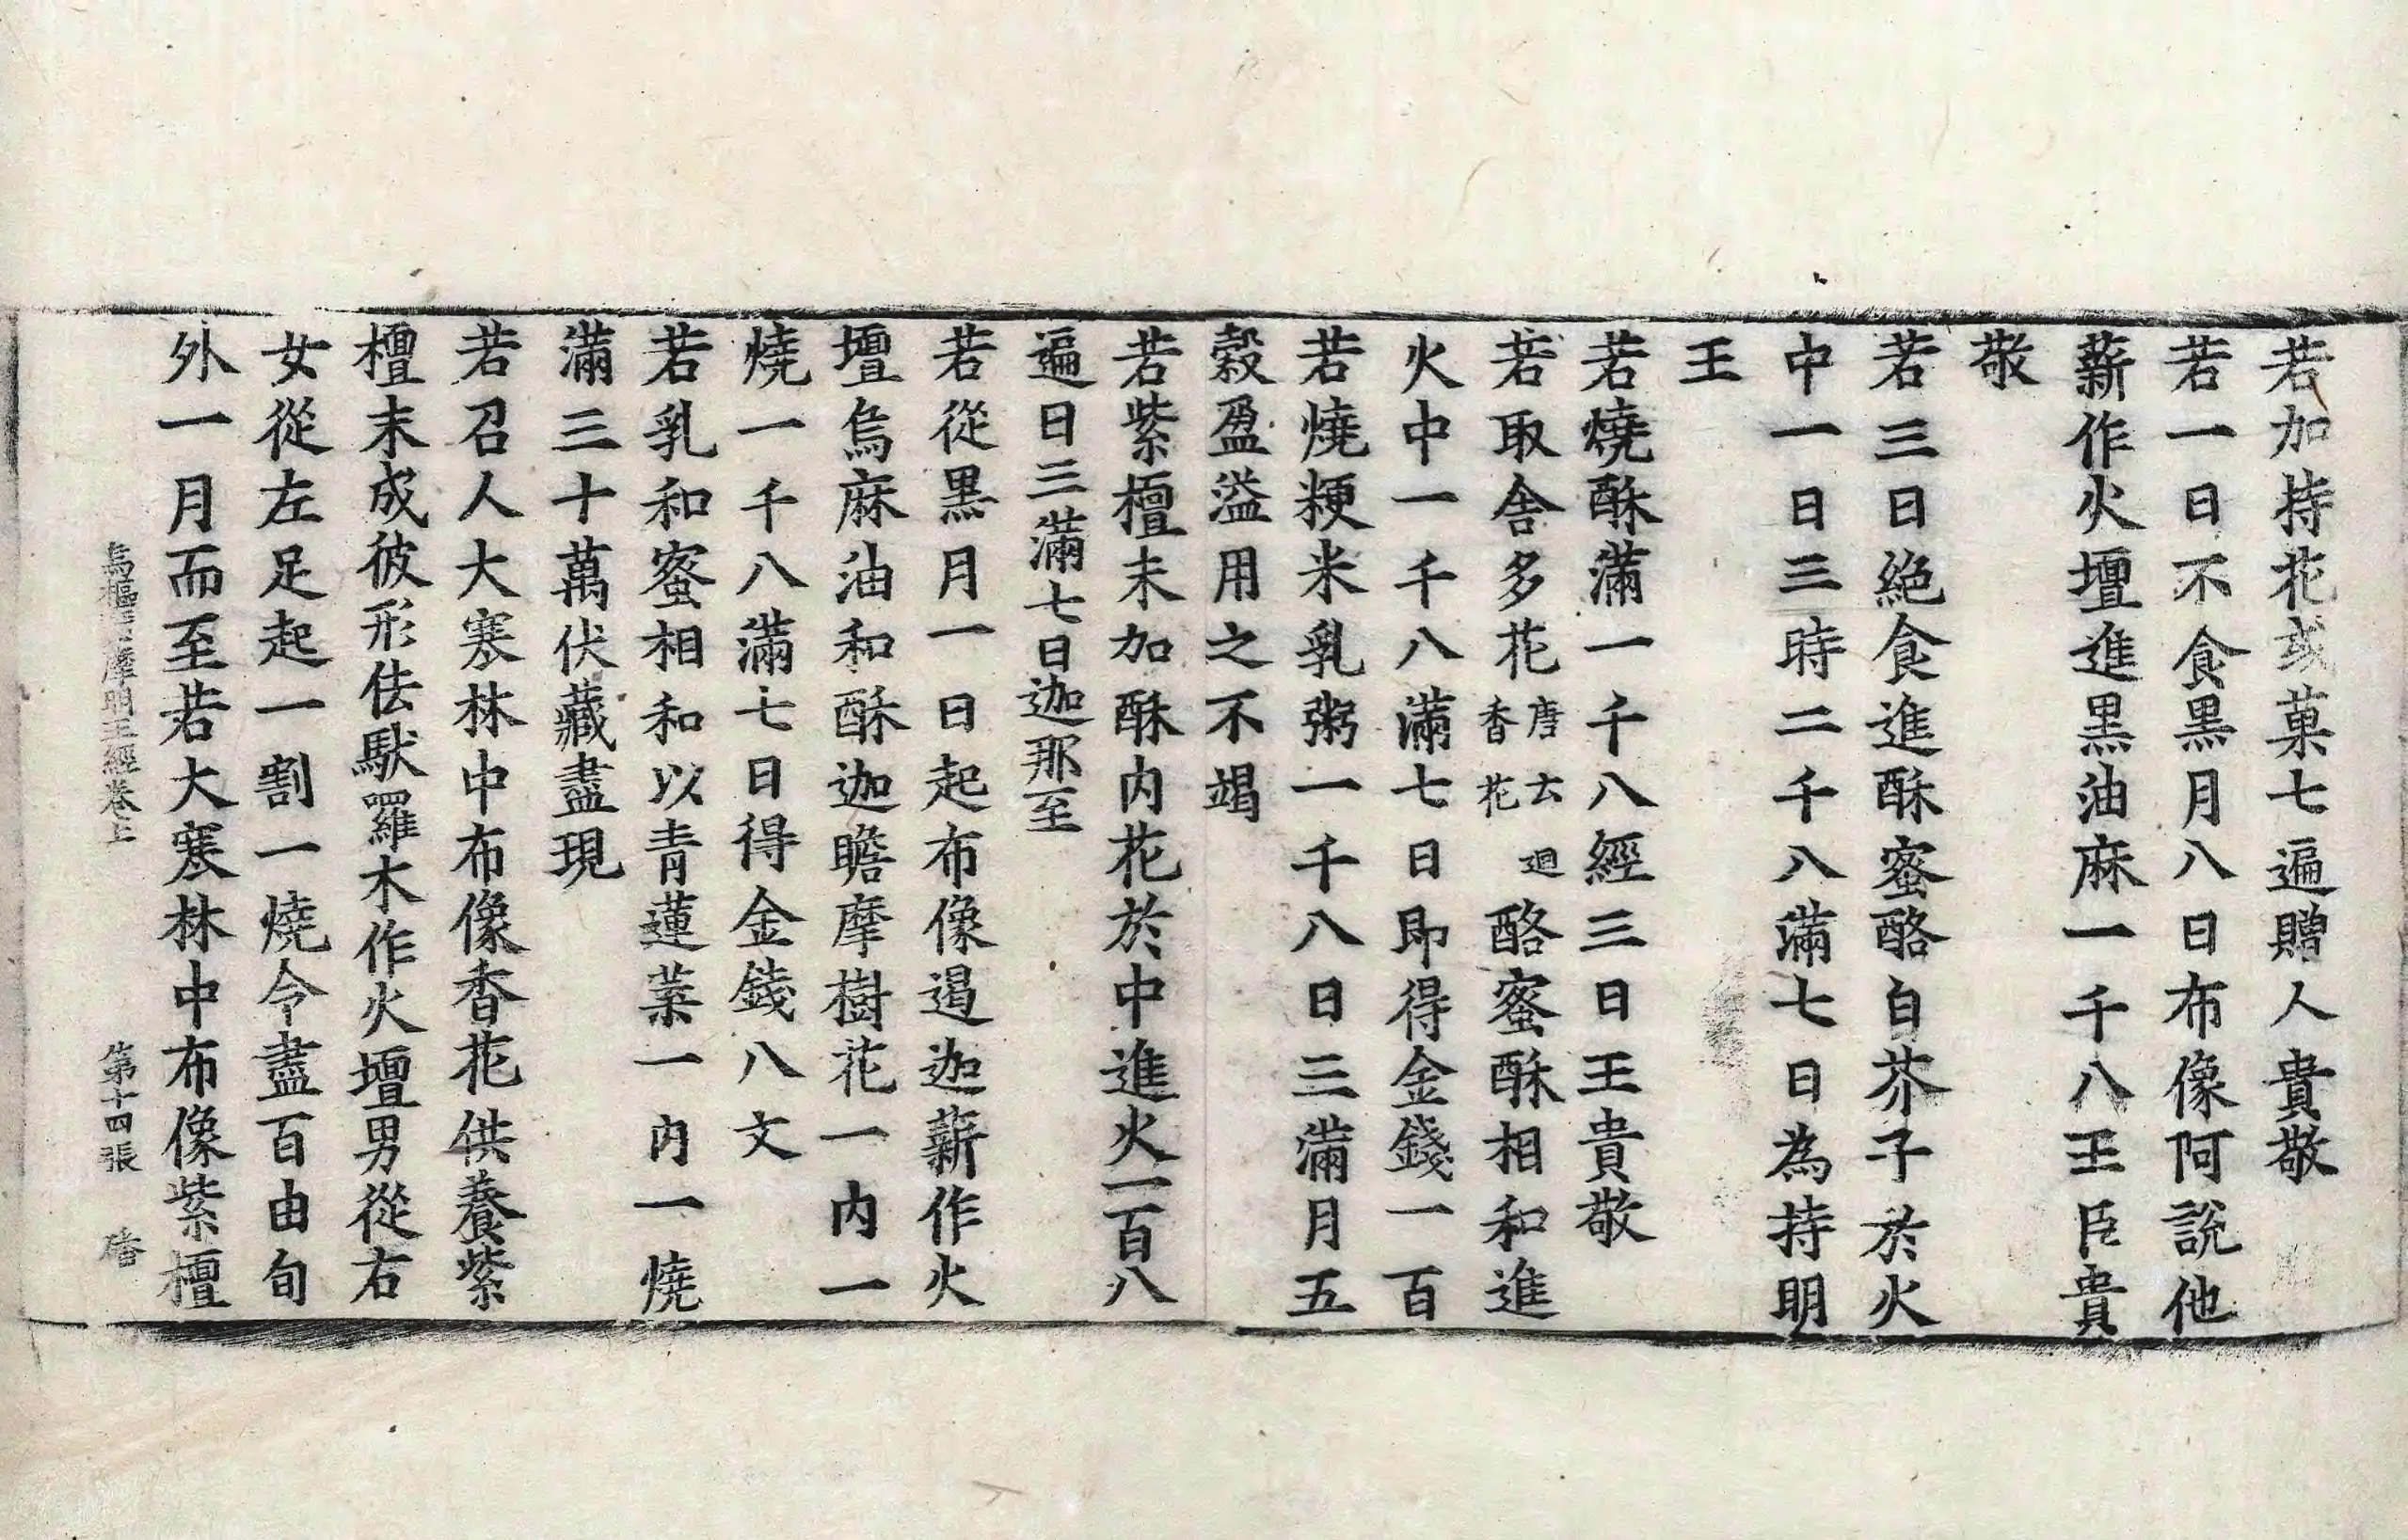 若加持花或菓七遍贈人貴敬
若一日不食黒月八日布像阿說他
薪作火壇進黒油麻一千八王臣貴
敬
若三日絶食進酥蜜酪白芥子於火
中一日三時二千八滿七日為持明
王
若燒酥滿一千八經三日王貴敬
若取舍多花唐云迴香花酪蜜酥相和進
火中一千八滿七日即得金錢一百
若燒粳米乳粥一千八日三滿月五
穀盈溢用之不竭
若紫檀末加酥内花於中進火一百八
遍日三滿七日迦那至
若從黒月一日起布像遏迦薪作火
壇烏麻油和酥迦瞻摩樹花一内一
燒一千八滿七日得金錢八文
若乳和蜜相和以青蓮葉一内一燒
滿三十萬伏藏盡現
若召人大寒林中布像香花供養紫
檀末成彼形佉馱囉木作火壇男從右
女從左足起一割一燒令盡百由旬
外一月而至若大寒林中布像紫檀
烏樞摩明王經卷上 第十四張